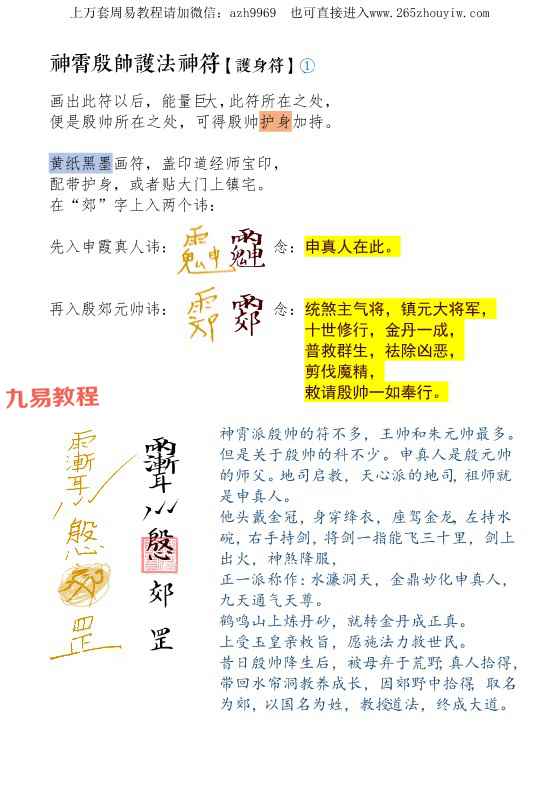 上万套周易教程请加微信：azh9969　也可直接进入www.265zhouyiw.com
神霄殷帥護法神符【護身符】①
画出此符以后，能量巨大，此符所在之处，
便是殷帅所在之处，可得殷帅护身加持。
黄纸黑墨画符，盖印道经师宝印，
配带护身，或者贴大门上镇宅。
在“郊”字上入两个讳：
先入申霞真人讳：
念：申真人在此。
再入殷郊元帅讳：
念：统煞主气将，镇元大将军，
十世修行，金丹一成，
普救群生，祛除凶恶，
剪伐魔精，
敕请殷帅一如奉行。
九易教程
神霄派殷帅的符不多，王帅和朱元帅最多。
但是关于殷帅的科不少。申真人是殷元帅
的师父。地司启教，天心派的地司，祖师就
是申真人。
他头戴金冠，身穿绛衣，座驾金龙，左持水
碗，右手持剑，将剑一指能飞三十里，剑上
出火，神煞降服，
正一派称作：水濂洞天，金鼎妙化申真人，
九天通气天尊。
鹤鸣山上炼丹砂，就转金丹成正真。
上受玉皇亲敕旨，愿施法力救世民。
昔日殷帅降生后，被母弃于荒野，真人拾得，
带回水帘洞教养成长，因郊野中拾得，取名
为郊，以国名为姓，教授道法，终成大道。
殷
郊
罡